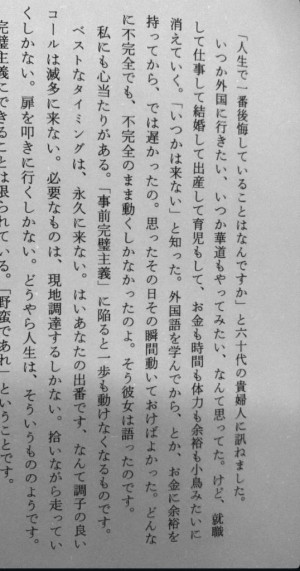 「人生で一番後悔していることはなんですか」と六十代の貴婦人に訊ねました。
いつか外国に行きたい、いつか華道もやってみたい、なんて思ってた。けど、就職
して仕事して結婚して出産して育児もして、お金も時間も体力も余裕も小鳥みたいに
消えていく。「いつかは来ない」と知った。外国語を学んでから、とか、お金に余裕を
持ってから、では遅かったの。思ったその日その瞬間動いておけばよかった。どんな
に不完全でも、不完全のまま動くしかなかったのよ。そう彼女は語ったのです。
私にも心当たりがある。「事前完璧主義」に陥ると一歩も動けなくなるものです。
ベストなタイミングは、永久に来ない。はいあなたの出番です、なんて調子の良い
コールは滅多に来ない。必要なものは、現地調達するしかない。拾いながら走ってい
くしかない。扉を叩きに行くしかない。どうやら人生は、そういうもののようです。
完璧主義にできることは限られている。「野蛮であれ」ということです。